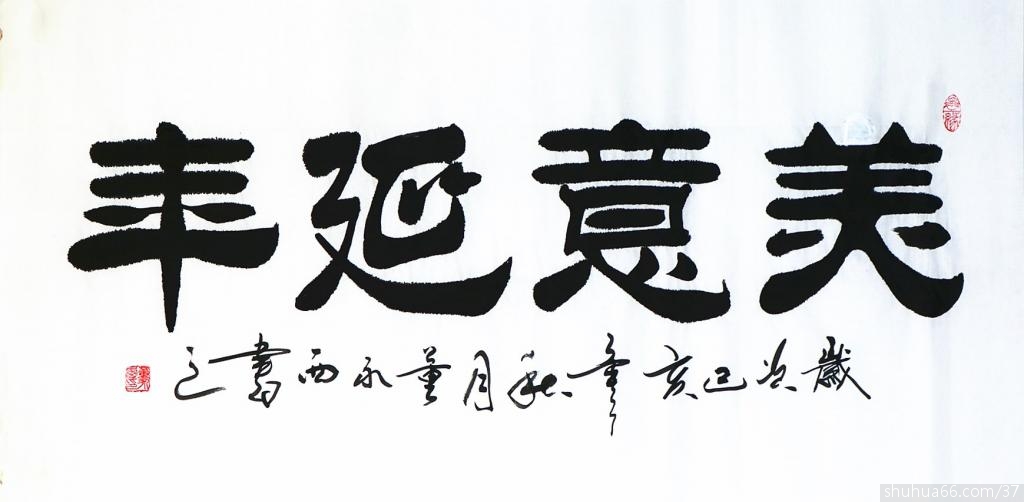 美意延年
歲次己亥年秋月董永西書之
shuhua66.com/37